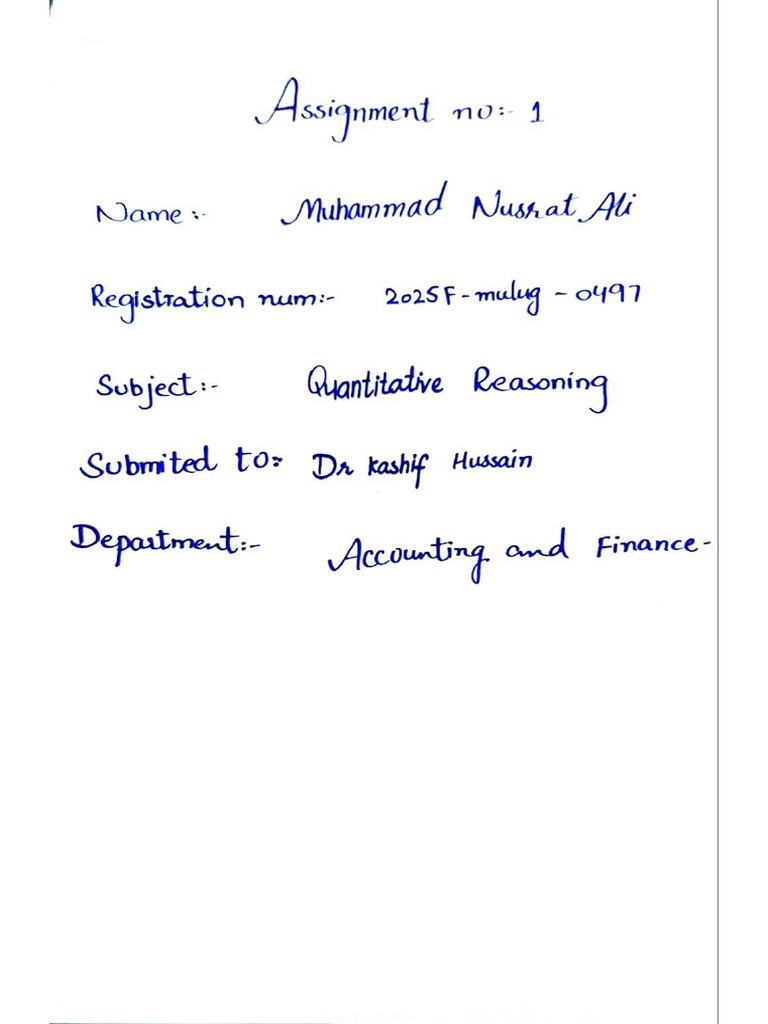 Assignment no:- 1
Name:- Muhammad Nusrat Ali
Registration num:- 2025F-mulug-0497
Subject:- Quantitative Reasoning
Submited to:- Dr Kashif Hussain
Department:- Accounting and Finance-